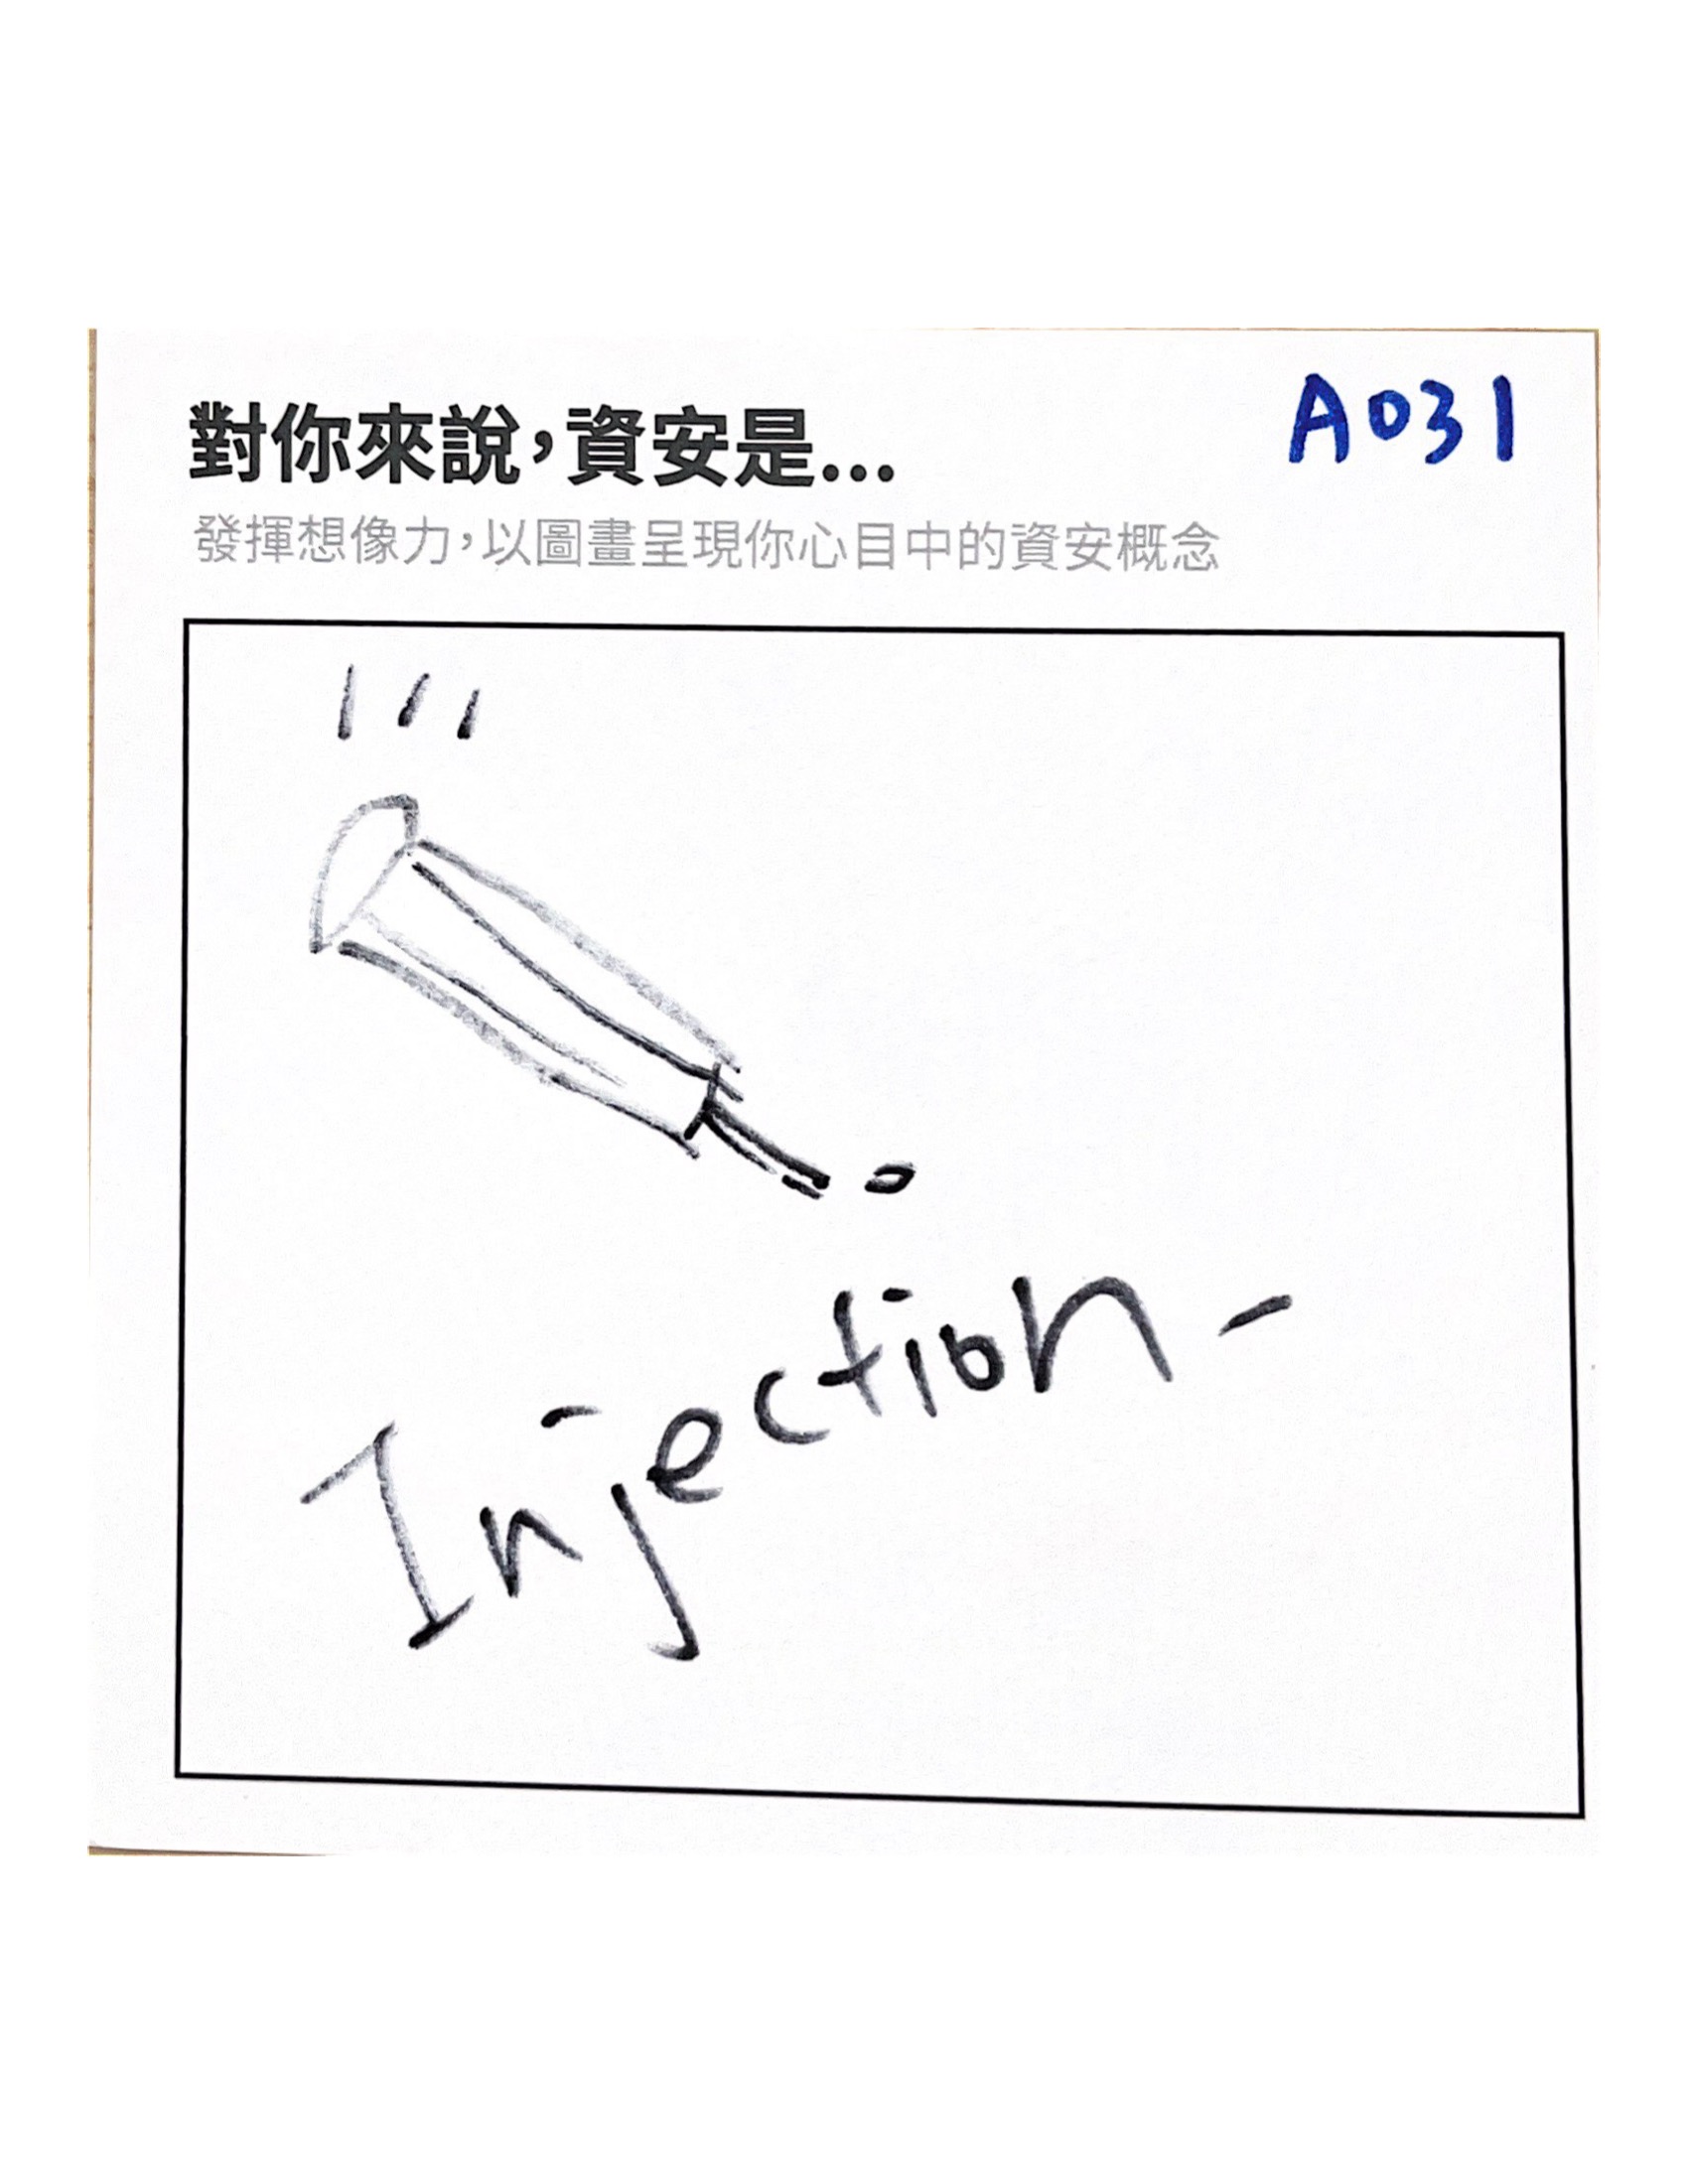 對你來說，資安是...
A031
發揮想像力，以圖畫呈現你心目中的資安概念
Injection-